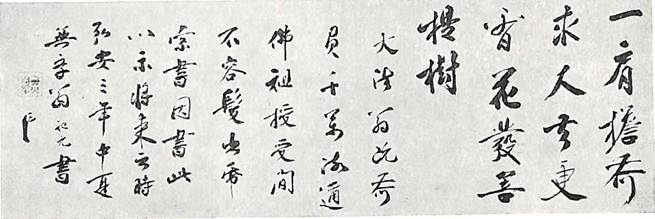 一肩擔荷
求人去更
看花發菩
提樹
大法翁既荷
負千萬流通
佛祖授受間
不容髮出帋
索書因書此
以示將來云時
弘安三年中夏
無學翁祖元書